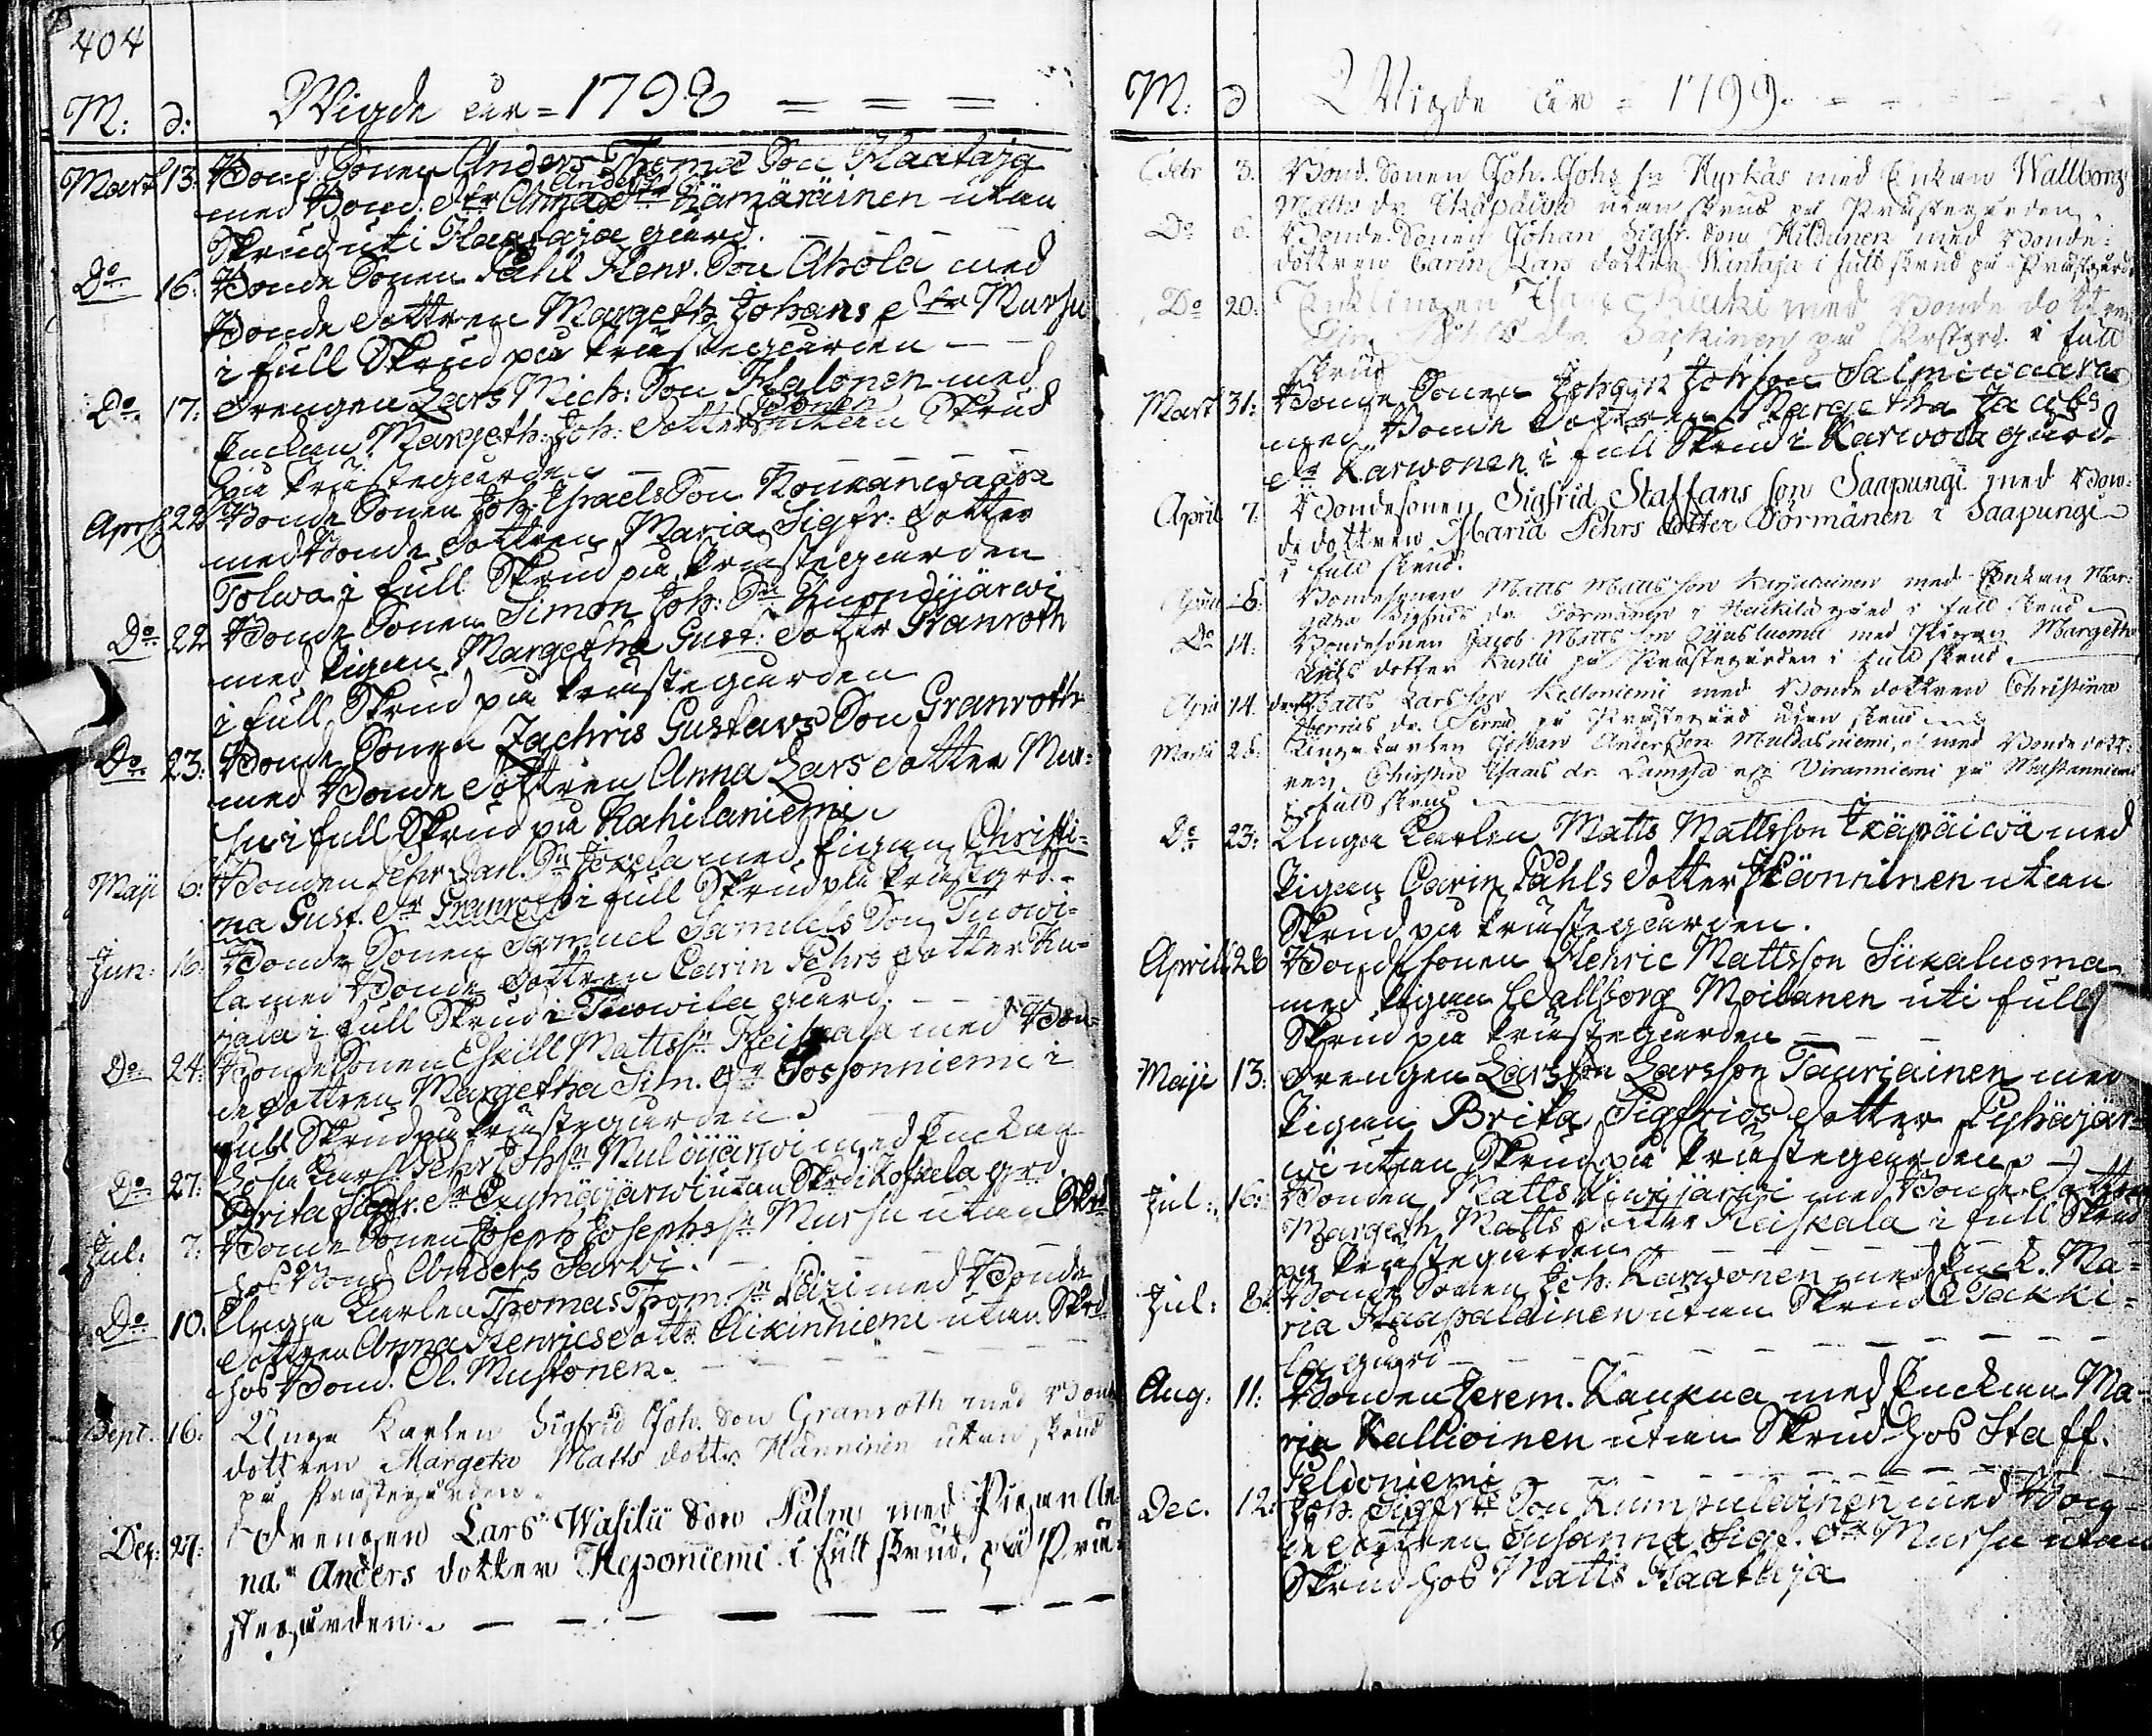 404
M: d: Wigde åhr = 1798 = = =
Mart 13. Bond. Sonen Anders Thomæ Son Haataja
med Bond. dtr Anna Anders dtr Kämäräinen utan
Skrud uti Haataja gård.
Do 16. Bonde Sonen Påhl Henr. Son Ahola med
Bonde dottren Margeth Johans dtr Mursu
i full Skrud på Prästegården
Do 17: Drengen Lars Mich: Son Halonen med
Enckan Margeth: Joh: dotter utan Skrud
på Prästegården
April 22 Bonde Sonen Joh: Israels Son Kouvanwaara
med Bonde dottren Maria Sigfr: dotter
Tolwa i full Skrud på Prästegården
Do 22 Bonde Sonen Simon Joh: Sn Kuondijärwi
med Pigan Margetha Gust: dottr Granroth
i full Skrud på Prästegården
Do 23: Bonde Sonen Zachris Gustavs Son Granroth
med Bonde dottren Anna Lars dotter Mur=
su i full Skrud på Kahilaniemi
Maji 6: Bonden Pehr Carl. Sn Jokela med Pigan Christi=
na Gust. dr Granroth i full Skrud på Prästgrd.
Jun: 16: Bonde Sonen Samuel Samuels Son Tuowi=
la med Bonde dottren Carin Pehrs dotter Ku=
jala i full Skrud i Tuowila gård.
Do 24: Bonde Sonen Eskill Matts sn Heiskala med Bon=
de dottren Margetha Sim. dr Jossonniemi i
full Skrud på Prästegården.
Do 27: Pehr Joh sn Mulojärwi med Enckan
Brita dr utan Skrud i grd
Jul: 7: Bonde Sonen Joseph Josephs sn Mursu utan Skrd
hos Bond. Anders Särki.
Do 10. Unga Karlen Thomas Thom. sn Päzi med Bonde
dottren Anna Henrics dottr. Aikinniemi utan Skrd
hos Bond. Ol. Mustonen.
Sept. 16: Unga Karlen Sigfrid Joh. Son Granroth med Bonde
dottren Margeta Matts dottr. Hänninen utan skrud
på Prästegården.
Dec: 27: Drengen Lars Wasilii Son Palm med Pigan An
na Anders dotter Keponiemi i full skrud, på Prä=
stegården.
M: d Wigde åhr = 1799.
Febr 3. Bond. Sonen Joh. Johs sn Kyrkäs med Enkan Wallborg
Matts dr. Ikäpäivä utan skrud på Prästegården.
Do 6. Bonde Sonen Johan Sigfr. Son Hildunen med Bonde=
dottren Carin Lars dotter Wintaja i full skrud på Prästgården
Do 20: Enklingen Isac med Bonde dottren
dr. på Prstgrd. i full
skrud
Mart 31: Bonde Sonen Johan Johsson Salmiwaara
med Bonde dottren Margetha Jacobs
dr Karwonen i full Skrud i Karwola gård.
April 7. Bondesonen Sigfrid Staffans son Saapungi med Bon=
de dottren Maria Pehrs dotter Törmänen i Saapungi
i full skrud.
April 8. Bondesonen Matts Matts son med Enkan Mar=
getha Sigfrids dr. Törmänen i Heikilä gård i full skrud
Do 14. Bondesonen Jacob Matts son Sijkaluoma med Pigan Margetha
dotter på Prästegården i full skrud.
April 14. Matts Lars son Kelloniemi med Bonde dottren Christina
dr. på Prästegård utan skrud
Martii 28. Unga karlen Johan Andersson Muldasniemi, med Bonde dott=
ren Christin Isaacs dr. Lamsa Viranniemi på Mustanniemi
i full skrud
Do 23: Unga Karlen Matts Mattsson Ikäpäiwä med
Pigan Carin Påhls dotter Hänninen utan
Skrud på Prästegården.
Aprill 28 Bondesonen Hehric Mattsson Siikaluoma
med Pigan Wallborg Moilanen uti full
Skrud på Prästegården
Maji 13: Drengen Lars son Larsson Tauriainen med
Pigan Brita Sigfrids dotter Pyhäjär=
wi utan Skrud på Prästegården
Jul: 16: Bonden Matts Kiwijärwi med Bonde dottren
Margeth Matts dotter Heiskala i full Skrud
på Prästegården
Jul: 8: Bonde Sonen Joh: Karwonen med Enck. Ma=
ria Haapalainen utan Skrud i Takki=
la gård
Aug. 11: Bonden Jerem. Kaukua med Enckan Ma=
ria Kallioinen utan Skrud hos Staff.
Peldoniemi
Dec. 12: Joh. Sigfrds Son Kumpulainen med Bon=
de dottren Susanna Sigf. dtr Mursu utan
Skrud hos Matts Haataja